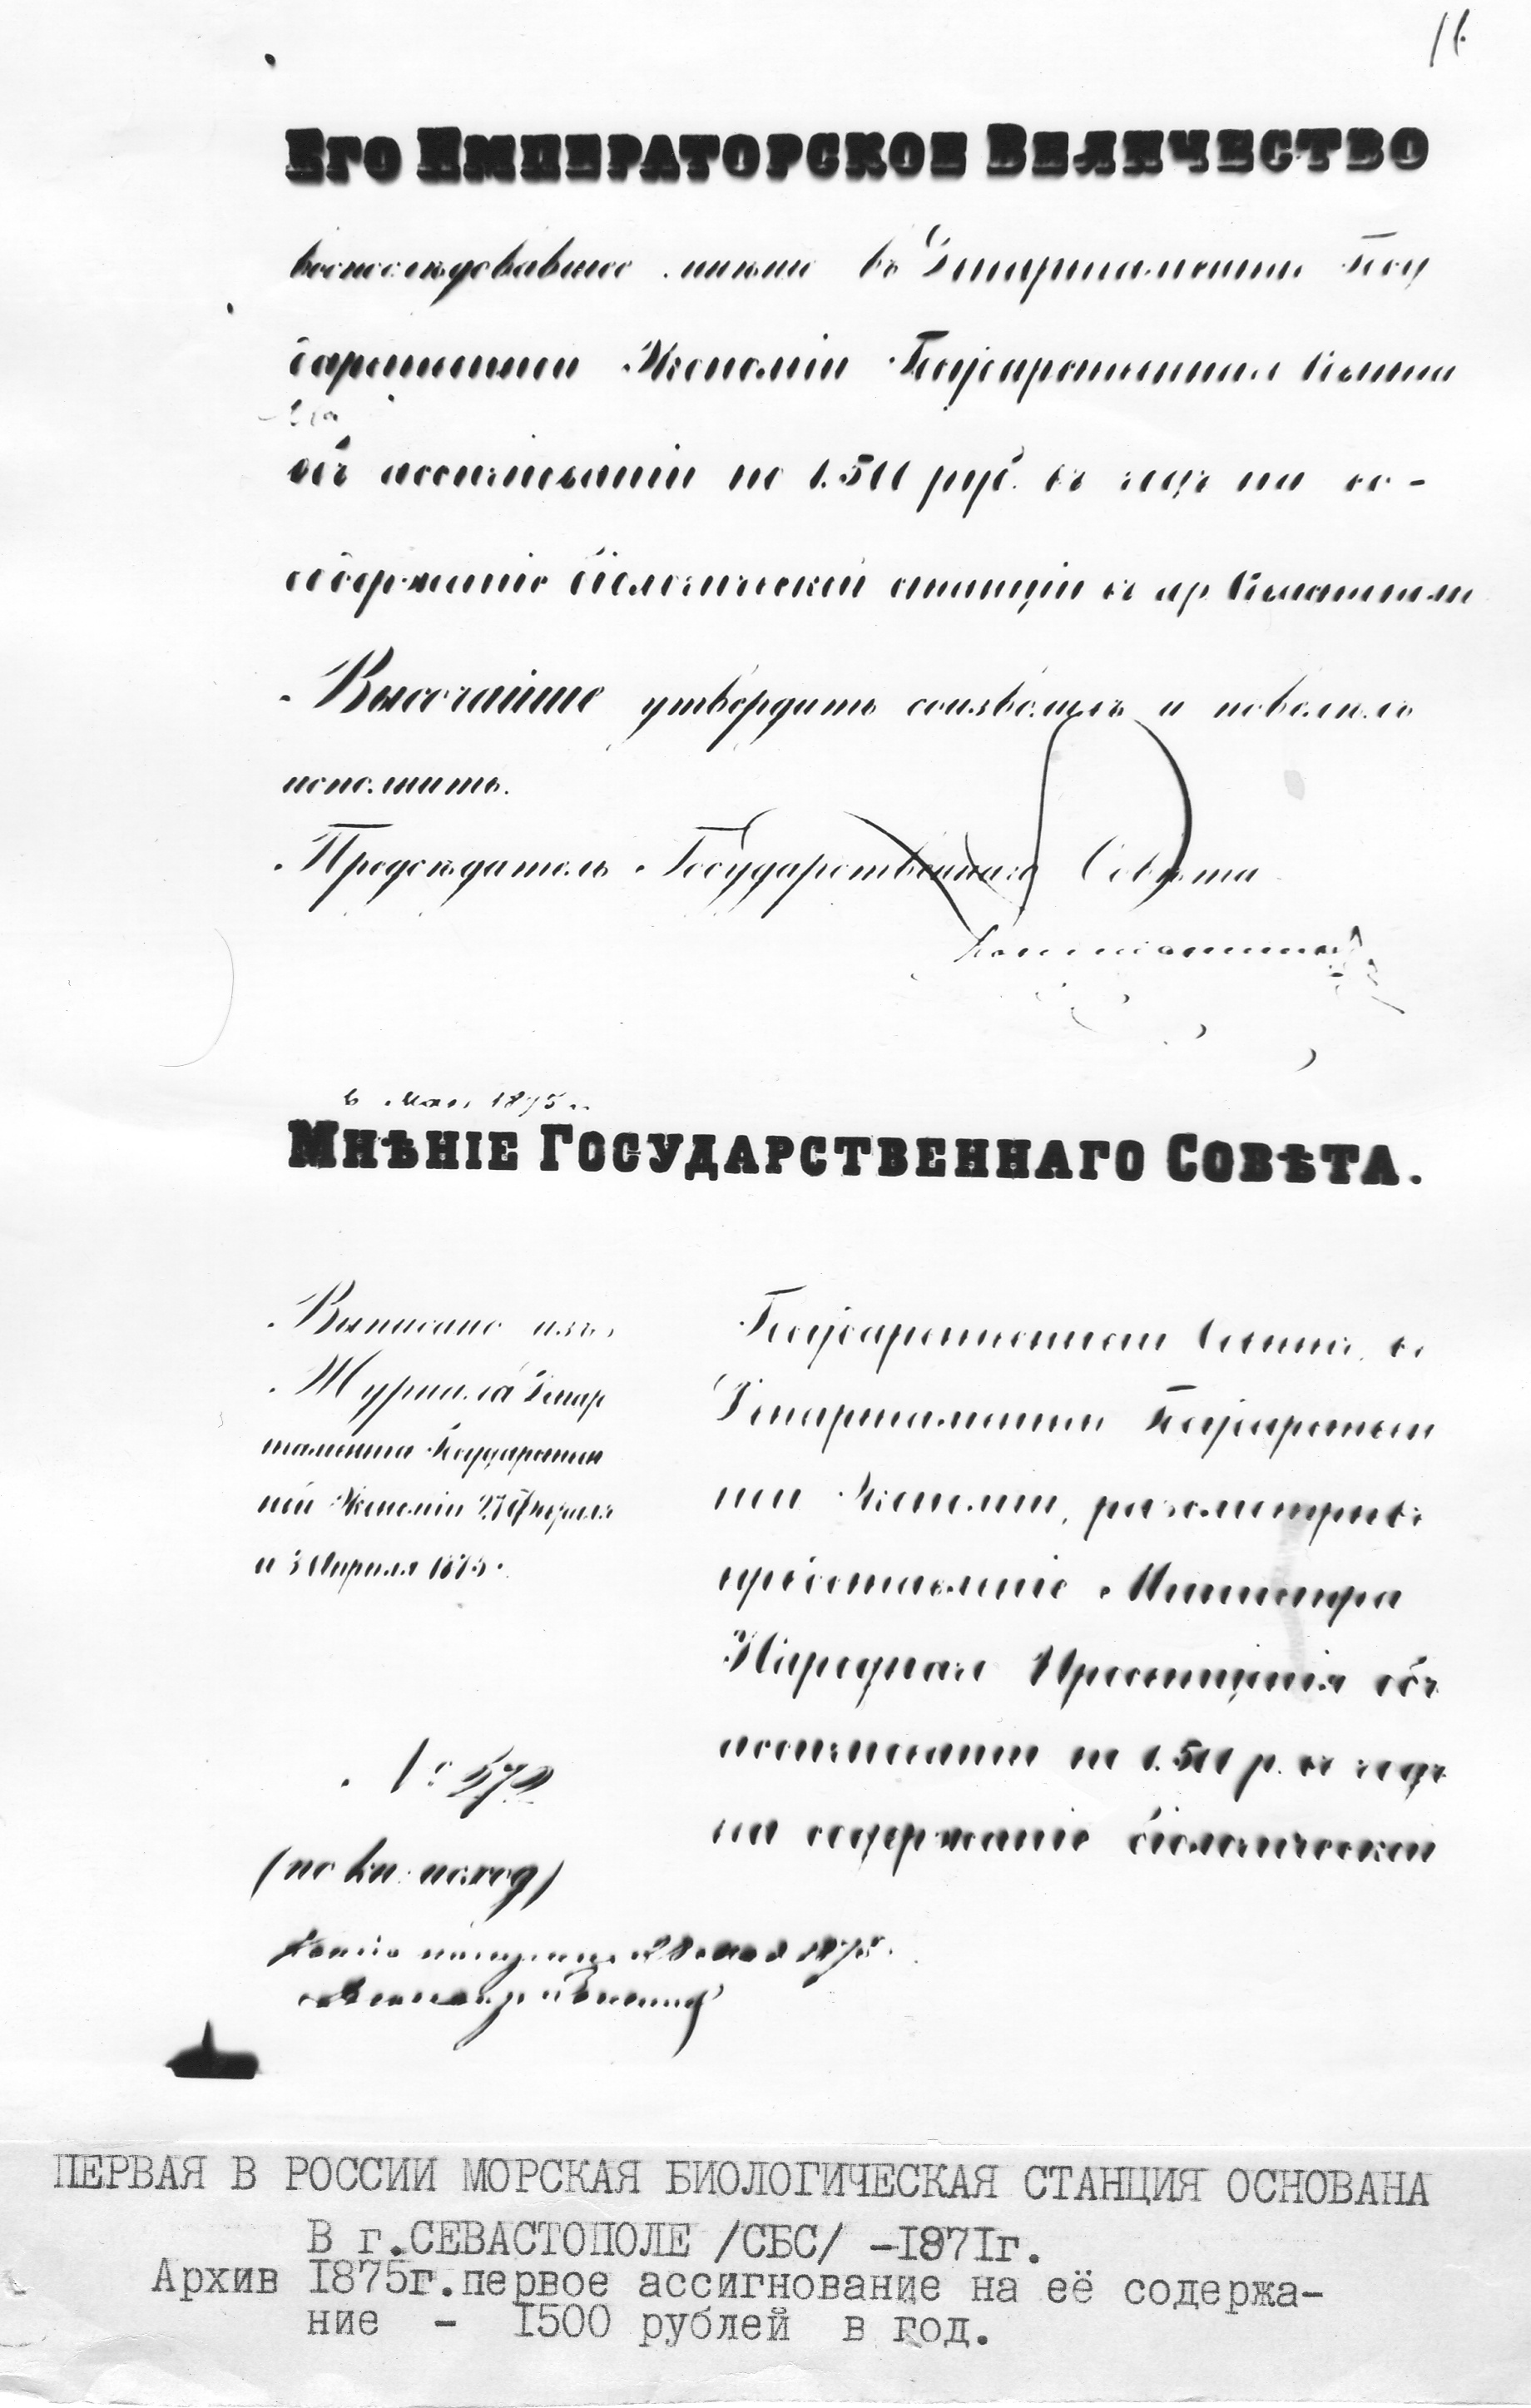 Его Императорское Величество
воспослѣдовавшее мнѣніе въ Департаментѣ Госу
дарственной Экономіи Государственнаго Совѣта
объ ассигнованіи по 1.500 руб. въ годъ на со-
содержаніе біологической станціи въ гор. Севастополѣ
Высочайше утвердить соизволилъ и повелѣлъ
исполнить.
Предсѣдатель Государственнаго Совѣта
Константинъ
6 мая 1875 г.
Мнѣніе Государственнаго Совѣта.
Выписано изъ
Журнала Депар
тамента Государствен
ной Экономіи 27 Февраля
и 3 Апрѣля 1875.
Государственный Совѣтъ, въ
Департаментѣ Государствен
ной Экономіи, разсмотрѣвъ
представленіе Министра
Народнаго Просвѣщенія объ
ассигнованіи по 1.500 р. въ годъ
на содержаніе біологической
№ 572
(по кн. исход)
28 мая 1875.
ПЕРВАЯ В РОССИИ МОРСКАЯ БИОЛОГИЧЕСКАЯ СТАНЦИЯ ОСНОВАНА
В г.СЕВАСТОПОЛЕ /СБС/ -1871г.
Архив 1875г.первое ассигнование на её содержа-
ние - 1500 рублей в год.